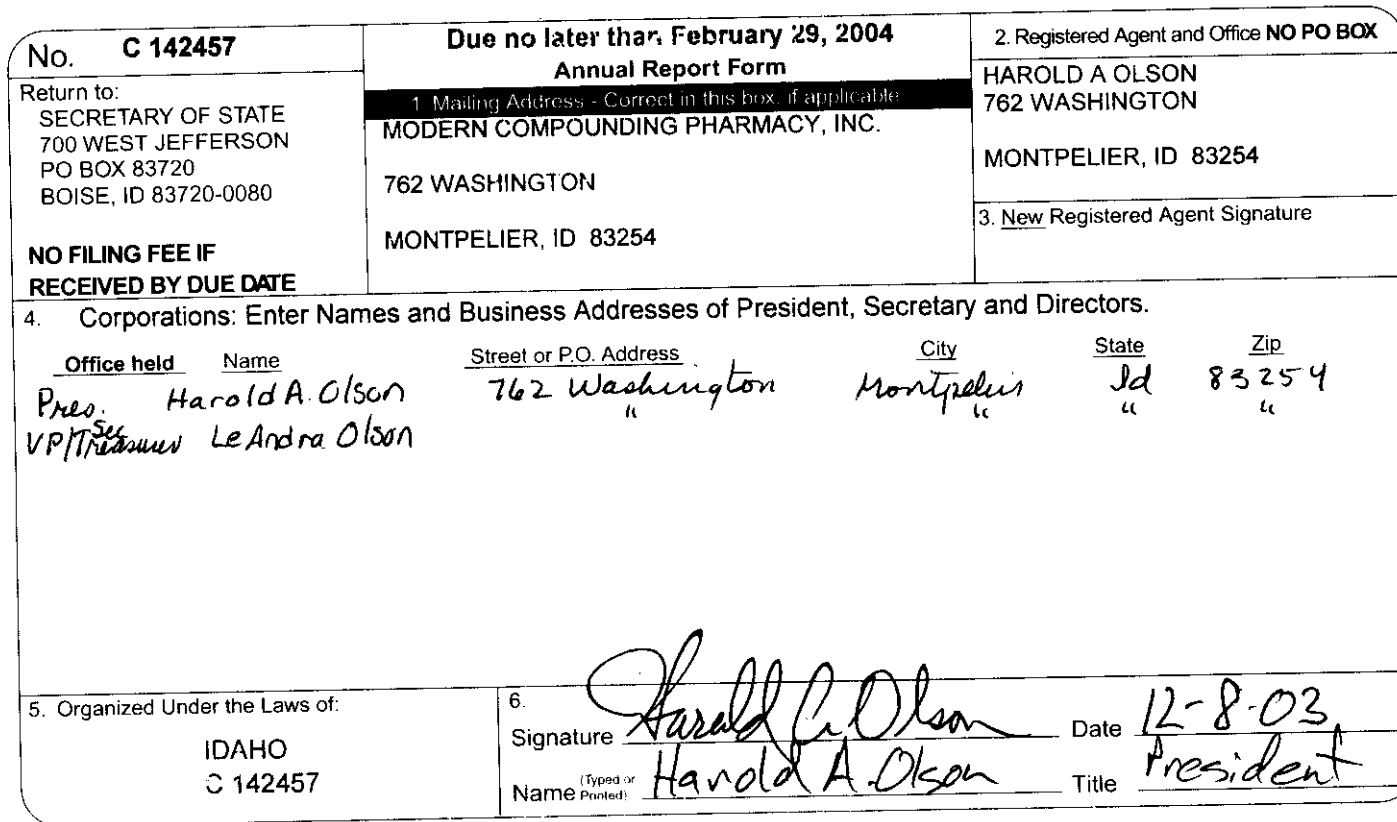 No. C 142457
Return to:
SECRETARY OF STATE
700 WEST JEFFERSON
PO BOX 83720
BOISE, ID 83720-0080
NO FILING FEE IF
RECEIVED BY DUE DATE
Due no later than February 29, 2004
Annual Report Form
1 Mailing Address - Correct in this box, if applicable
MODERN COMPOUNDING PHARMACY, INC.
762 WASHINGTON
MONTPELIER, ID 83254
2. Registered Agent and Office NO PO BOX
HAROLD A OLSON
762 WASHINGTON
MONTPELIER, ID 83254
3. New Registered Agent Signature
4. Corporations: Enter Names and Business Addresses of President, Secretary and Directors.
Office held Name Street or P.O. Address City State Zip
Pres. Harold A. Olson 762 Washington Montpelier Id 83254
VP/Sec Treasurer LeAndra Olson " " " "
5. Organized Under the Laws of:
IDAHO
C 142457
6.
Signature Harold A Olson Date 12-8-03
Name (Typed or Printed) Harold A. Olson Title President